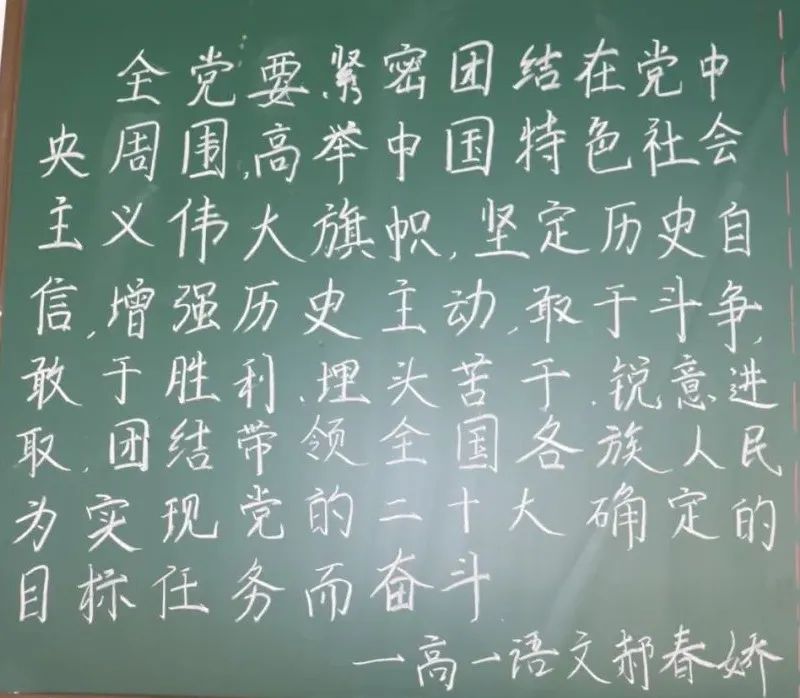 全党要紧密团结在党中
央周围,高举中国特色社会
主义伟大旗帜,坚定历史自
信,增强历史主动,敢于斗争,
敢于胜利,埋头苦干,锐意进
取,团结带领全国各族人民
为实现党的二十大确定的
目标任务而奋斗
一高一语文郝春娇